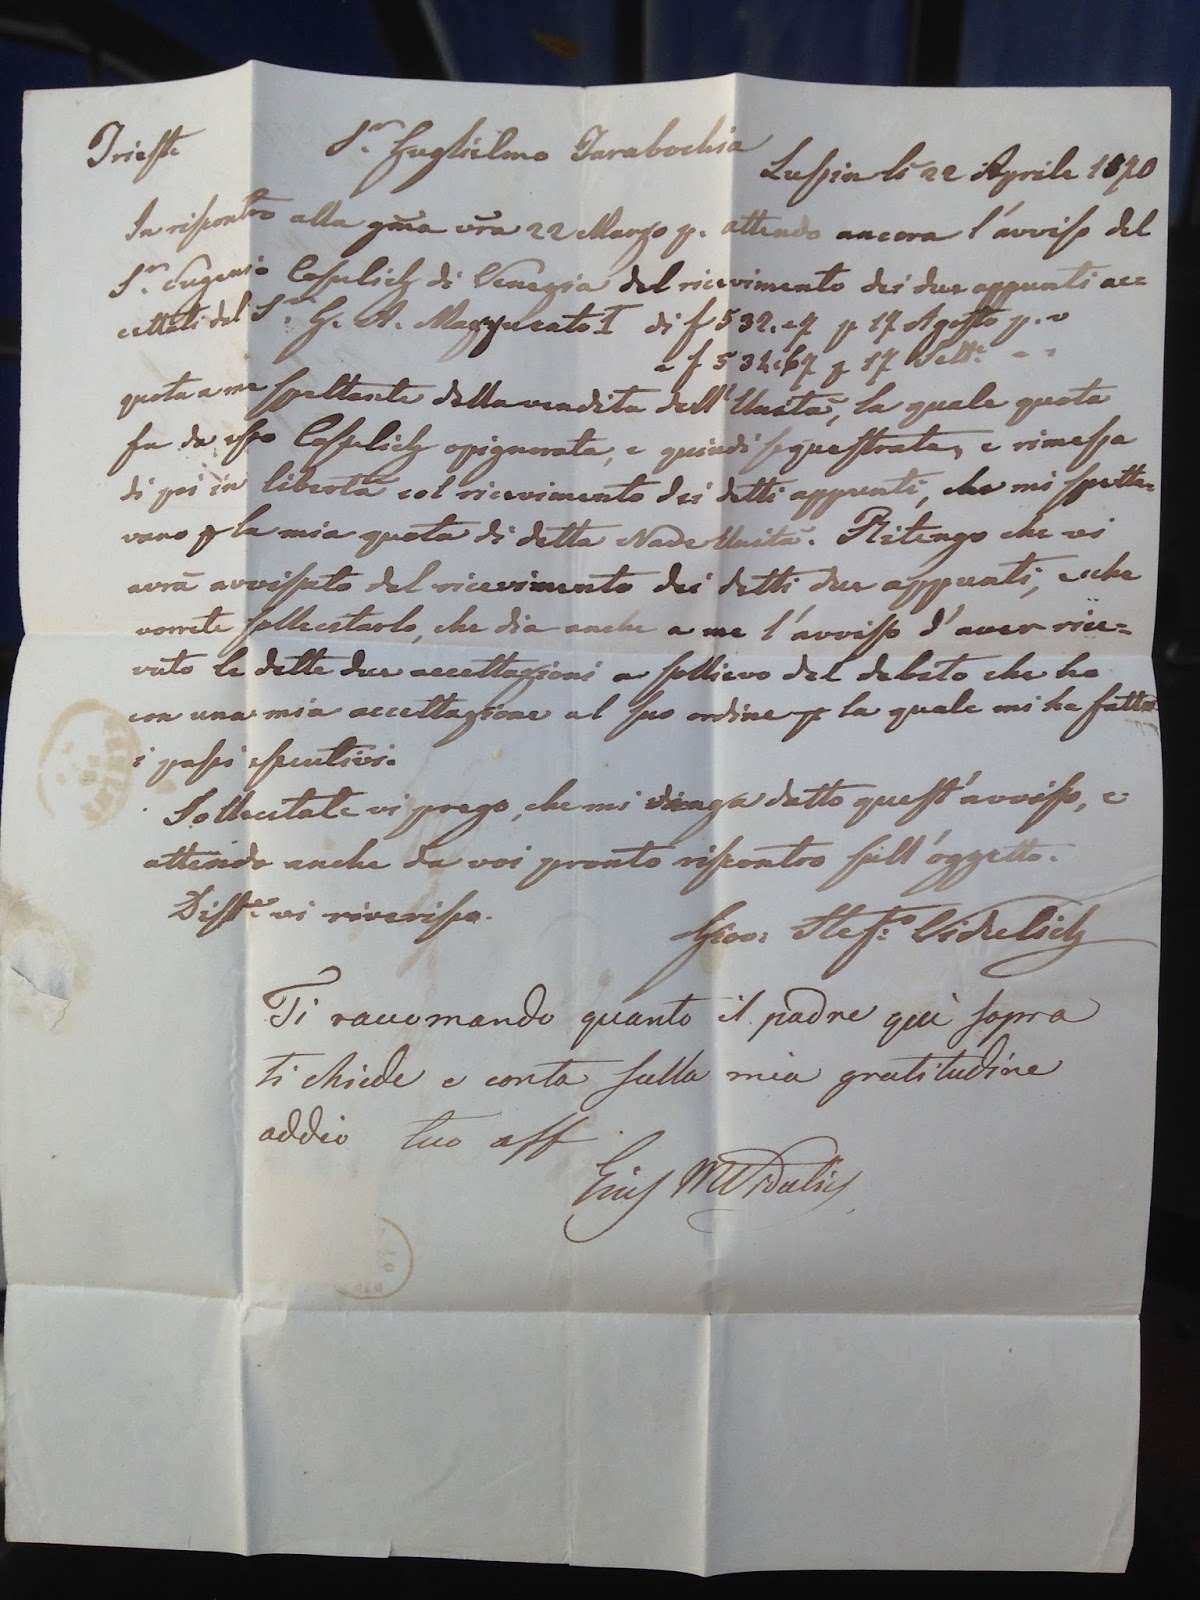 Trieste Sr. Guglielmo Tarabochia
Lussin lì 22 Aprile 1870
In riscontro alla gma vra 22 Marzo p. attendo ancora l'avviso del
Sr. Eugenio Cosulich di Venezia del ricevimento dei due appunti ac=
cettati del Sr. G. A. Mazzucato di f 532. p 17 Agosto p.o
" f 532.67 p 17 Sette. " "
quota a me spettante della vendita dell'Unità, la quale quota
fu da esso Cosulich opignorata, e quindi sequestrata, e rimessa
di poi in libertà col ricevimento dei detti appunti, che mi spetta=
vano p la mia quota di detta Nave Unità. Ritengo che vi
avrà avvisato del ricevimento dei detti due appunti, e che
vorrete sollecitarlo, che dia anche a me l'avviso d'aver rice=
vuto le dette due accettazioni a sollievo del debito che ho
con una mia accettazione al suo ordine p la quale mi ha fatto
i passi esecutivi.
Sollecitate vi prego, che mi venga detto quest'avviso, e
attendo anche da voi pronto riscontro sull'oggetto.
Distte. vi riverisco.
Giov: Stef:o Vidulich
Ti raccomando quanto il padre quì sopra
ti chiede e conta sulla mia gratitudine
addio tuo aff
Gius M Vidulich